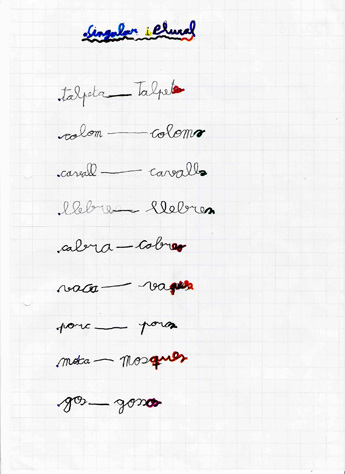 Singular i Plural
.talpeta — Talpetes
.colom — coloms
.cavall — cavalls
.llebre — llebres
.cabra — cabres
.vaca — vaques
.porc — porcs
.mosca — mosques
.gos — gossos